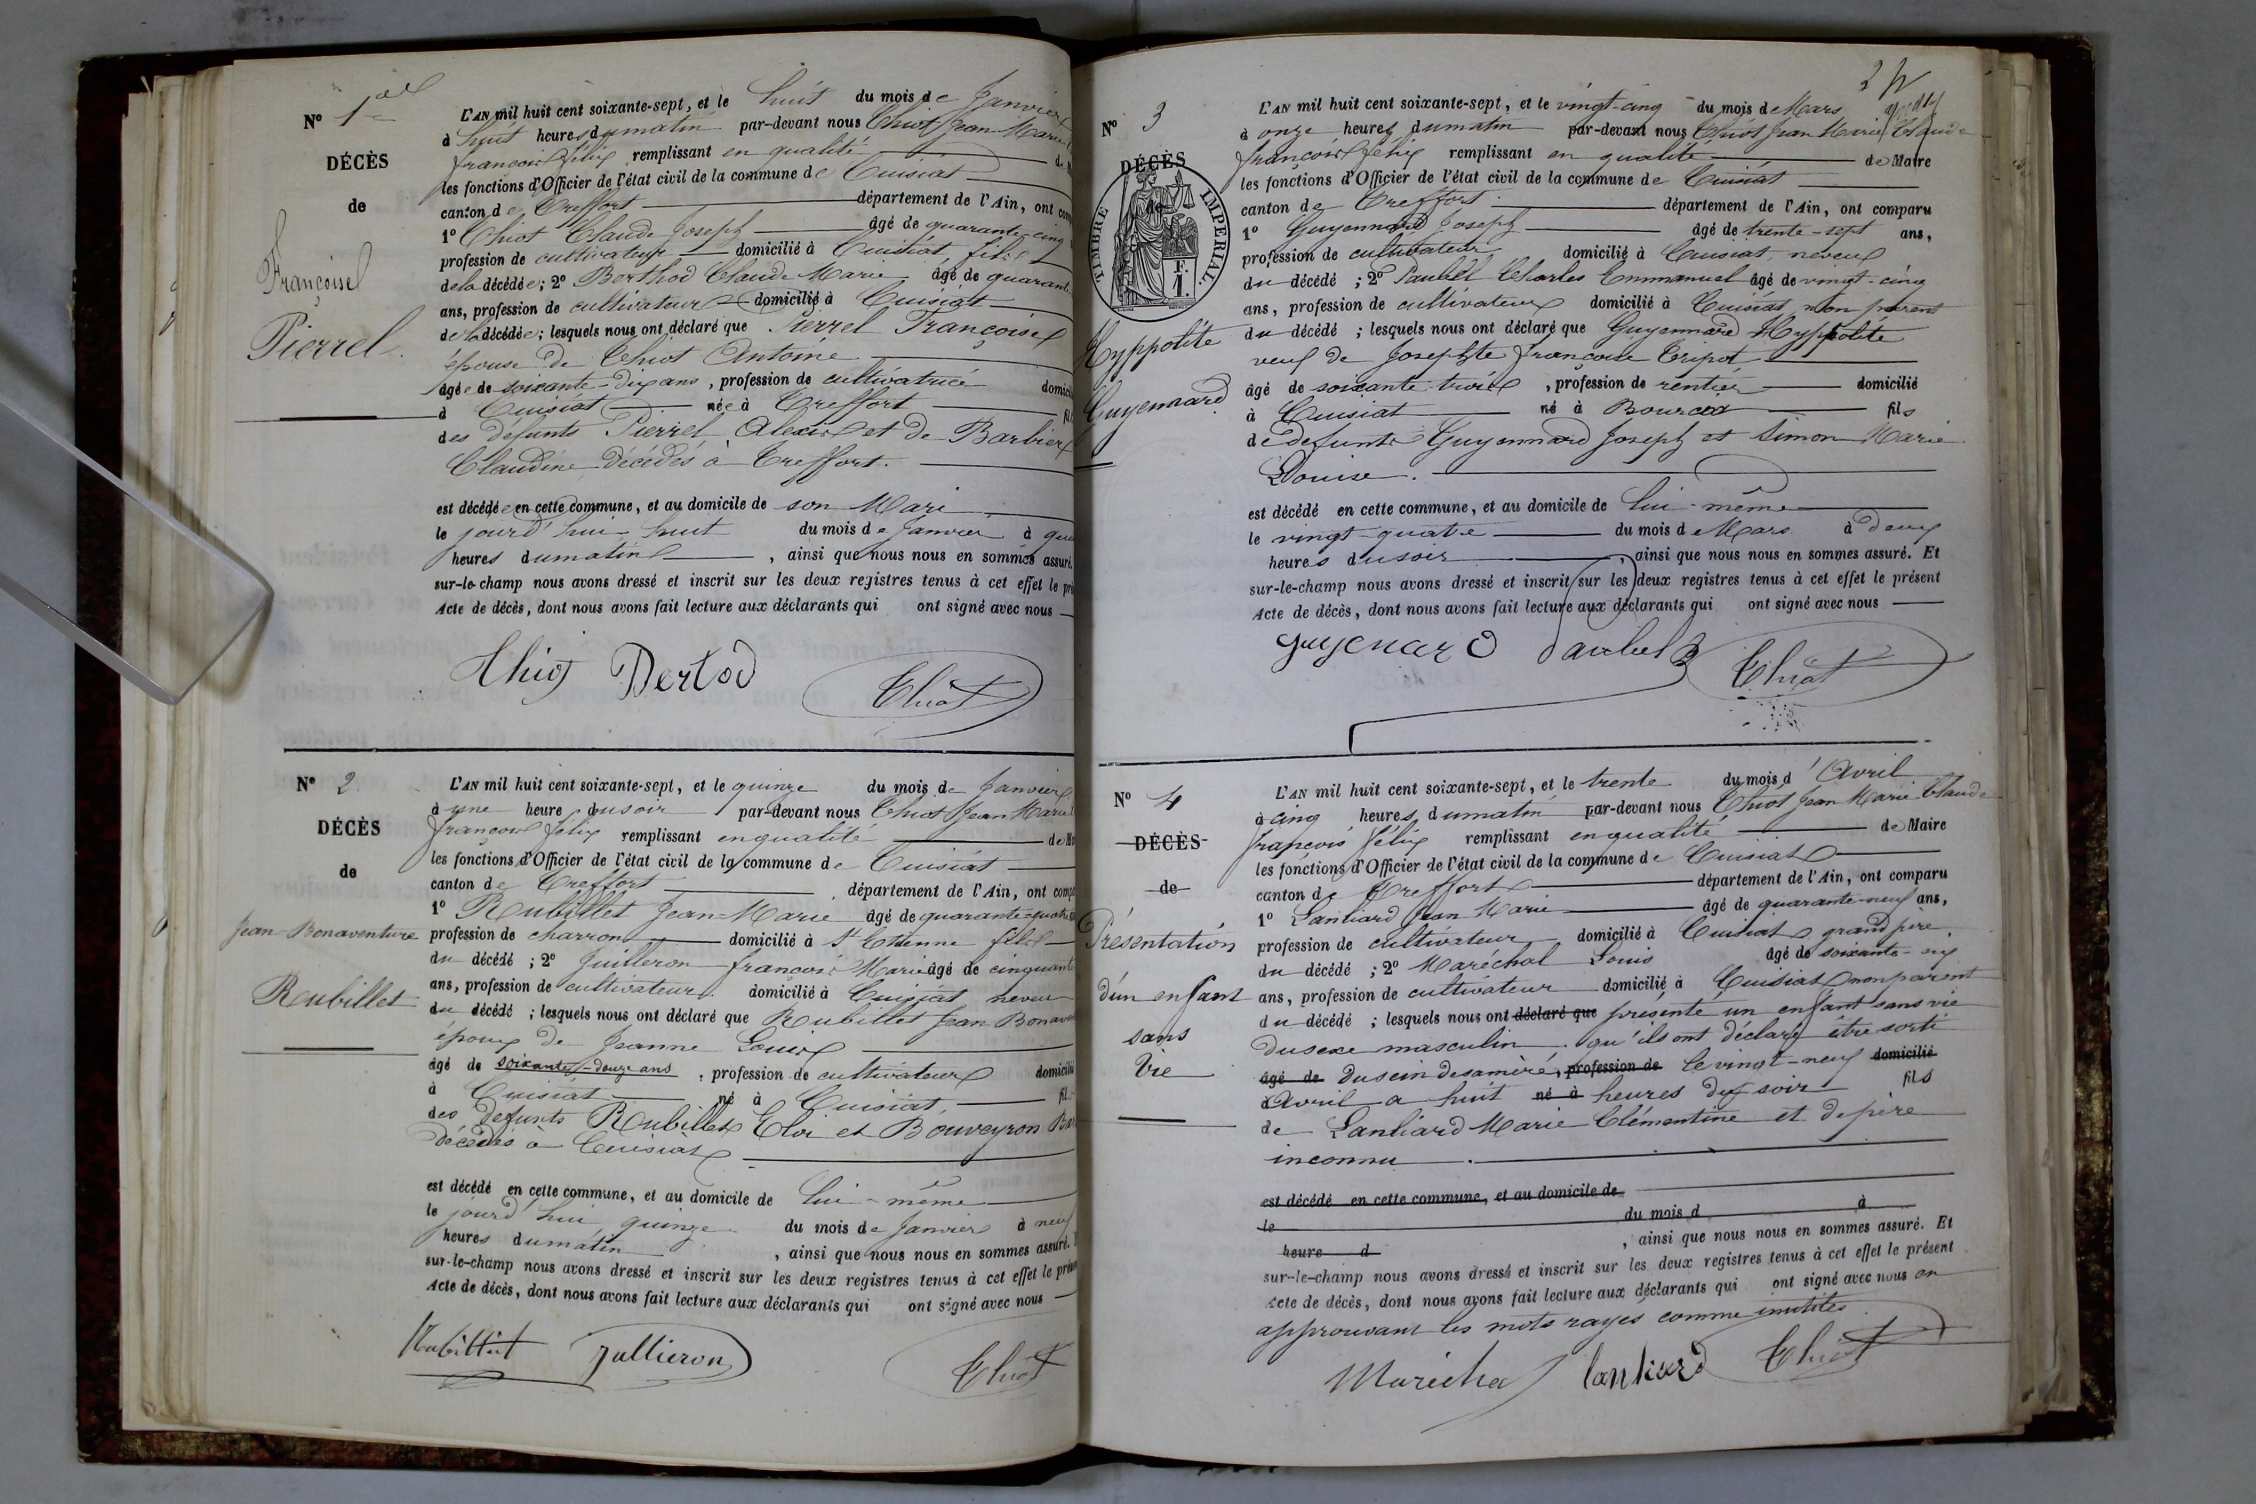 No 1er
DÉCÈS
de
Françoise
Pierrel
L'AN mil huit cent soixante-sept, et le huit du mois de Janvier
à huit heures du matin par-devant nous Chiot Jean-Marie
françois félix remplissant en qualité de M
les fonctions d'Officier de l'état civil de la commune de Cuisiat
canton de Treffort département de l'Ain, ont com
1º Chiot Claude Joseph âgé de quarante-cinq
profession de cultivateur domicilié à Cuisiat, fils
de la décédée; 2º Berthod Claude Marie âgé de quarante
ans, profession de cultivateur domicilié à Cuisiat
de la décédée; lesquels nous ont déclaré que Pierrel Françoise
épouse de Chiot Antoine
âgée de soixante-dix ans, profession de cultivatrice domici
à Cuisiat née à Treffort fil
des défunts Pierrel Alexis et de Barbier
Claudine décédés à Treffort.
est décédée en cette commune, et au domicile de son Mari
le jourd'hui huit du mois de Janvier à qua
heures du matin, ainsi que nous nous en sommes assuré.
sur-le-champ nous avons dressé et inscrit sur les deux registres tenus à cet effet le pré
Acte de décès, dont nous avons fait lecture aux déclarants qui ont signé avec nous
Chiot Bertod Chiot
No 2
DÉCÈS
de
Jean-Bonaventure
Rubillet
L'AN mil huit cent soixante-sept, et le quinze du mois de Janvier
à une heure du soir par-devant nous Chiot Jean Marie
françois félix remplissant en qualité de Ma
les fonctions d'Officier de l'état civil de la commune de Cuisiat
canton de Treffort département de l'Ain, ont comp
1º Rubillet Jean-Marie âgé de quarante-quatre
profession de charron domicilié à St Etienne fils
du décédé; 2º Juilleron françois Marie âgé de cinquante
ans, profession de cultivateur domicilié à Cuisiat neveu
du décédé; lesquels nous ont déclaré que Rubillet Jean Bonaven
époux de Jeanne Louis
âgé de soixante-douze ans, profession de cultivateur domicilié
à Cuisiat né à Cuisiat, fil
des défunts Rubillet Eloi et Bouveyron
décédés à Cuisiat
est décédé en cette commune, et au domicile de lui-même
le jourd'hui quinze du mois de Janvier à neuf
heures du matin, ainsi que nous nous en sommes assuré.
sur-le-champ nous avons dressé et inscrit sur les deux registres tenus à cet effet le prése
Acte de décès, dont nous avons fait lecture aux déclarants qui ont signé avec nous
Rubillet Jullieron Chiot
2
No 3
DÉCÈS
de
TIMBRE IMPERIAL
F.
1.
Hyppolite
Guyennard
L'AN mil huit cent soixante-sept, et le vingt-cinq du mois de Mars
à onze heures du matin par-devant nous Chiot Jean Marie Claude
françois félix remplissant en qualité de Maire
les fonctions d'Officier de l'état civil de la commune de Cuisiat
canton de Treffort département de l'Ain, ont comparu
1º Guyennard Joseph âgé de trente-sept ans,
profession de cultivateur domicilié à Cuisiat, neveu
du décédé; 2º Daubel Charles Emmanuel âgé de vingt-cinq
ans, profession de cultivateur domicilié à Cuisiat, non parent
du décédé; lesquels nous ont déclaré que Guyennard Hyppolite
veuf de Josephte françoise Tripot
âgé de soixante-trois, profession de rentier domicilié
à Cuisiat né à Bourcia fils
de defunts Guyennard Joseph et Simon Marie
Louise.
est décédé en cette commune, et au domicile de lui-même
le vingt-quatre du mois de Mars à deux
heures du soir, ainsi que nous nous en sommes assuré. Et
sur-le-champ nous avons dressé et inscrit sur les deux registres tenus à cet effet le présent
Acte de décès, dont nous avons fait lecture aux déclarants qui ont signé avec nous
guyenard daubel Chiot
No 4
DÉCÈS
de
Présentation
d'un enfant
sans
vie
L'AN mil huit cent soixante-sept, et le trente du mois d'Avril
à cinq heures du matin par-devant nous Chiot Jean Marie Claude
françois félix remplissant en qualité de Maire
les fonctions d'Officier de l'état civil de la commune de Cuisiat
canton de Treffort département de l'Ain, ont comparu
1º Lanhard Jean Marie âgé de quarante-neuf ans,
profession de cultivateur domicilié à Cuisiat grand père,
du décédé; 2º Maréchal Louis âgé de soixante-six
ans, profession de cultivateur domicilié à Cuisiat non parent
du décédé; lesquels nous ont déclaré que présenté un enfant sans vie
du sexe masculin. qu'ils ont déclaré être sorti
âgé de du sein de sa mère, profession de le vingt-neuf domicilié
d'Avril a huit né à heures du soir fils
de Lanhard Marie Clémentine et de père
inconnu.
est décédé en cette commune, et au domicile de
le du mois d à
heure d, ainsi que nous nous en sommes assuré. Et
sur-le-champ nous avons dressé et inscrit sur les deux registres tenus à cet effet le présent
Acte de décès, dont nous avons fait lecture aux déclarants qui ont signé avec nous en
approuvant les mots rayés comme inutiles.
Maréchal Lanhard Chiot